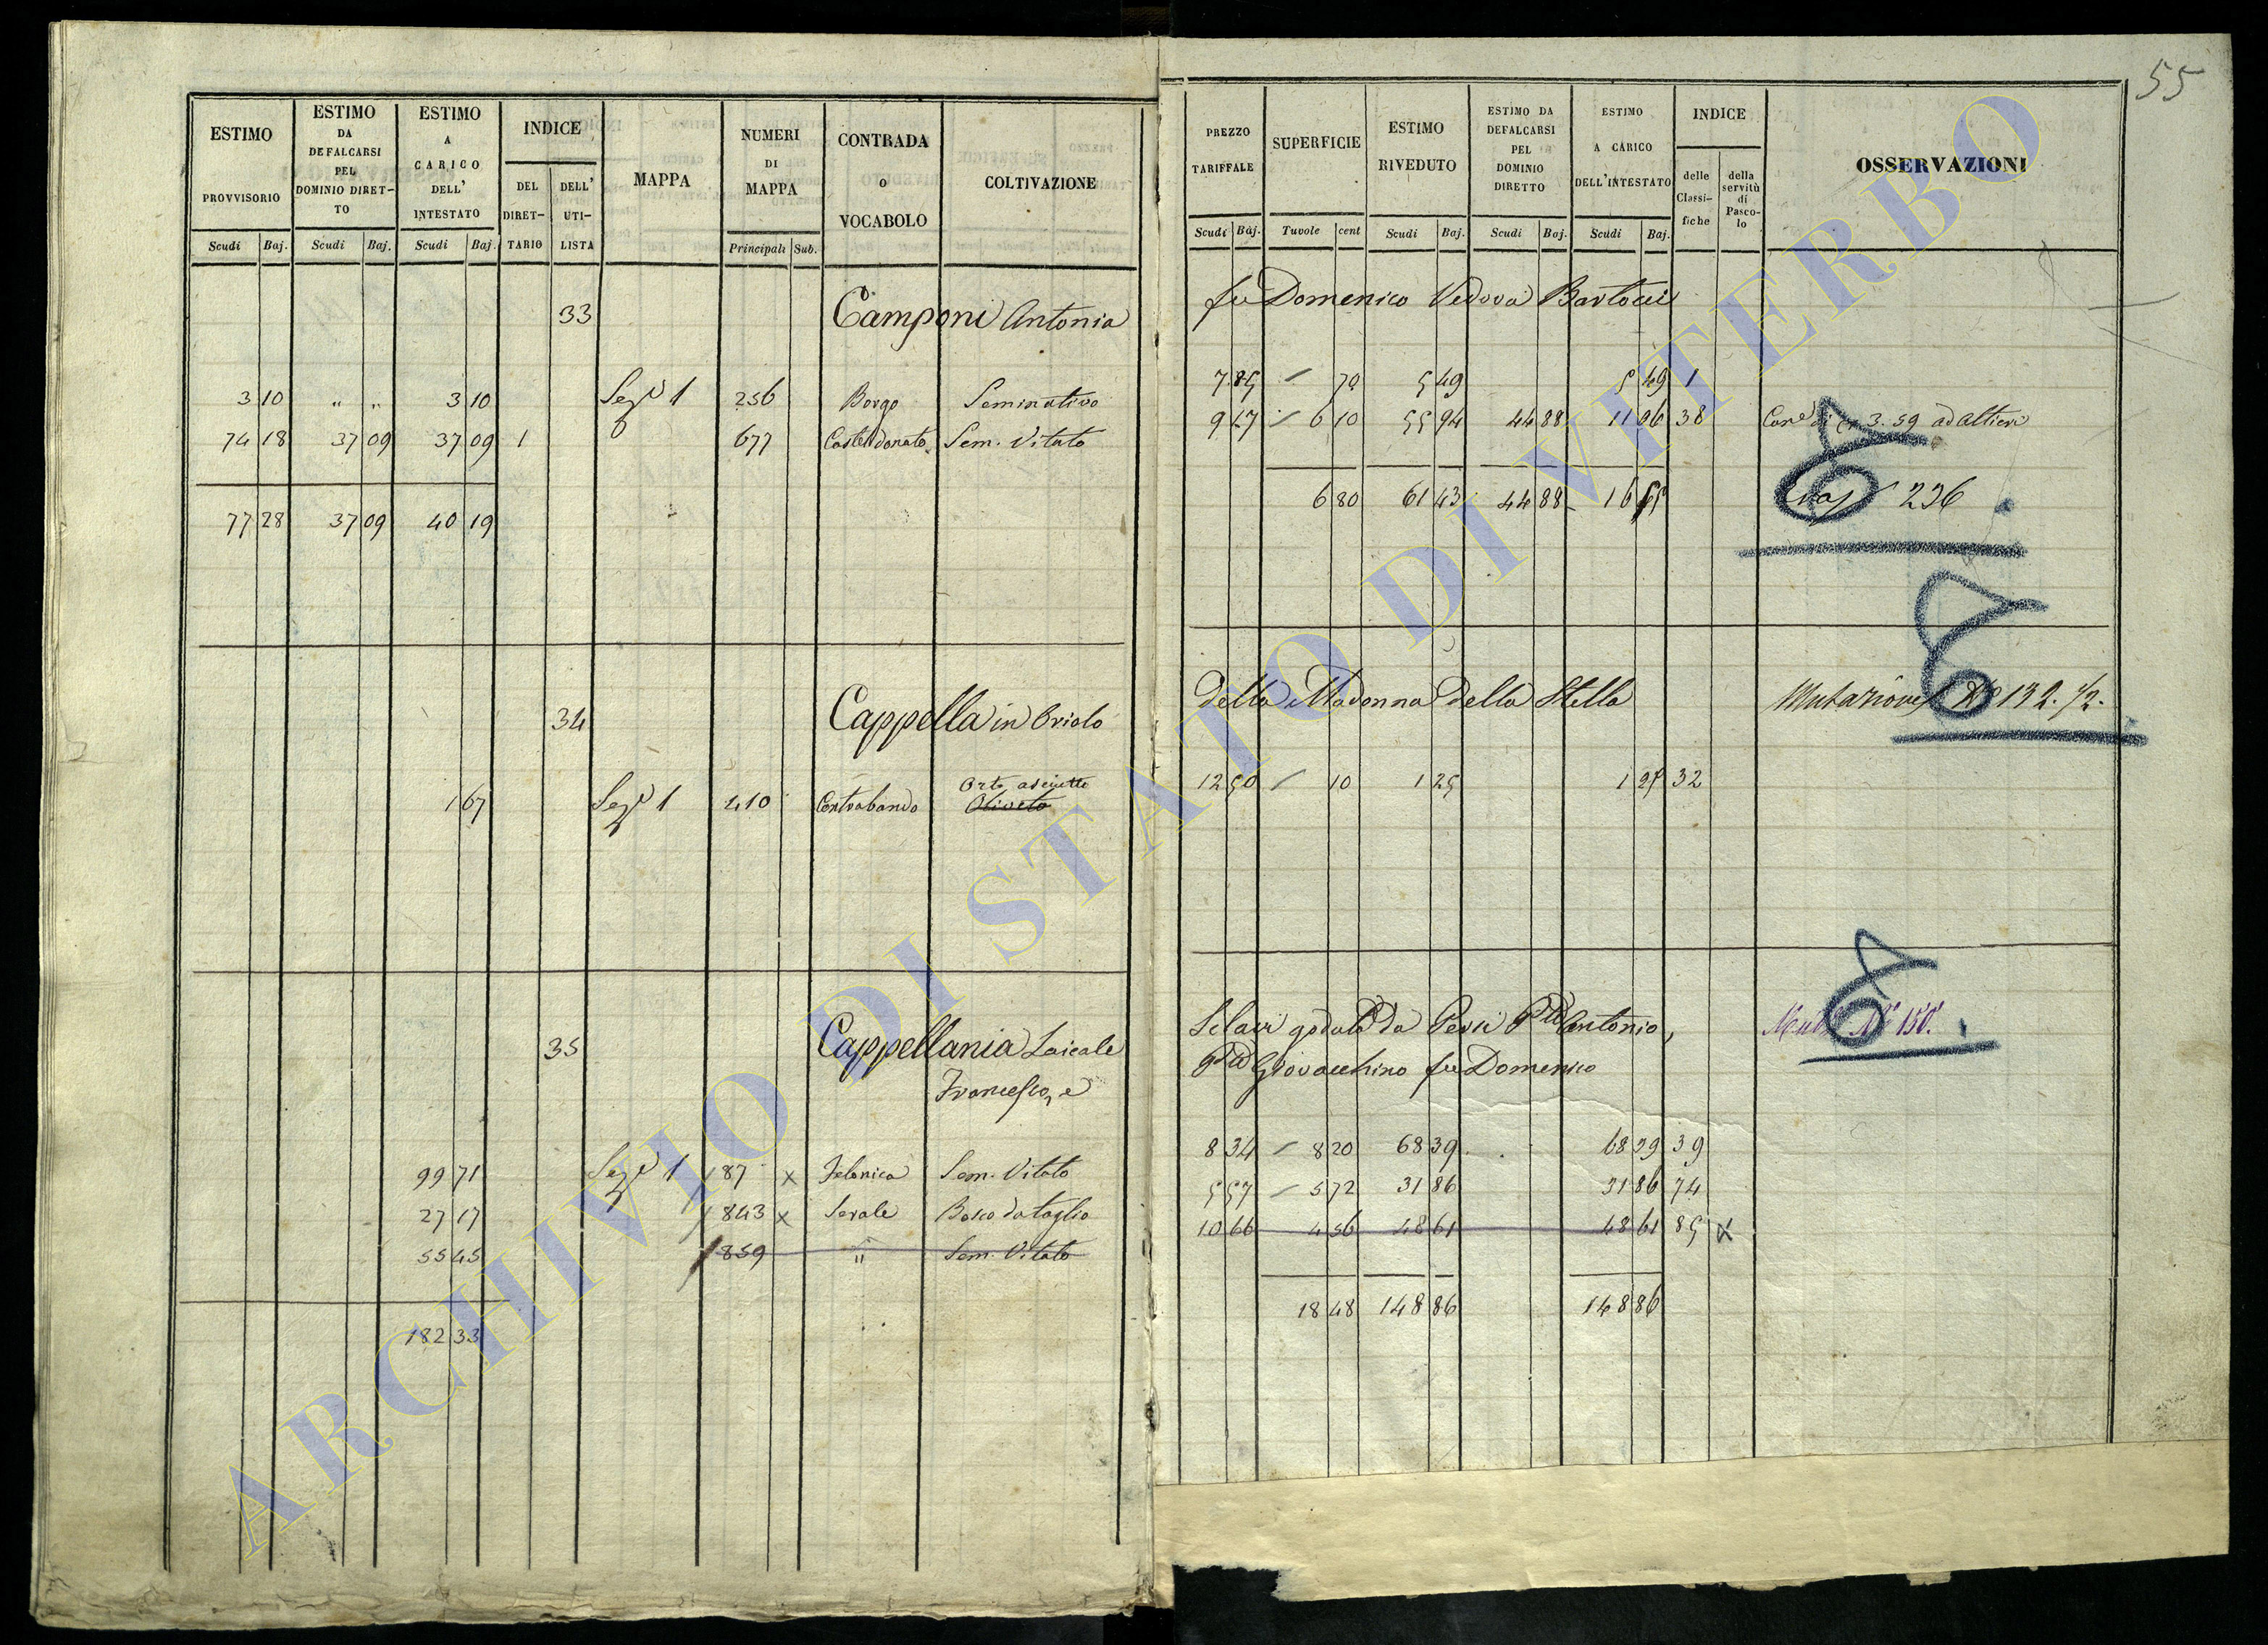 55
ESTIMO PROVVISORIO
ESTIMO DA DEFALCARSI PEL DOMINIO DIRET-TO
ESTIMO A CARICO DELL' INTESTATO
INDICE
DEL DIRET-TARIO
DELL' UTI-LISTA
MAPPA
NUMERI DI MAPPA
CONTRADA O VOCABOLO
COLTIVAZIONE
Scudi Baj. Scudi Baj. Scudi Baj. Principali Sub.
PREZZO TARIFFALE
SUPERFICIE
ESTIMO RIVEDUTO
ESTIMO DA DEFALCARSI PEL DOMINIO DIRETTO
ESTIMO A CARICO DELL'INTESTATO
INDICE
delle Classi-fiche
della servitù di Pasco-lo
OSSERVAZIONI
Scudi Baj. Tavole cent Scudi Baj. Scudi Baj. Scudi Baj.
33 Camponi Antonia fu Domenico Vedova Bartocci
3 10 " " 3 10 Sez.e 1 256 Borgo Seminativo 7 85 70 5 49 5 49 1
74 18 37 09 37 09 1 677 Casteldonato Sem. Vitato 9 17 6 10 55 94 44 88 11 06 38 3.59 ad Altieri
77 28 37 09 40 19 6 80 61 43 44 88 16 55 236
34 Cappella in Oriolo della Madonna della Stella Mutazione No 132. 1/2.
1 67 Sez.e 1 410 Contrabando Orto asciutto Oliveto 12 50 10 1 25 1 25 32
35 Cappellania Laicale Sclavi goduta da Persi Pte Antonio, No 150.
Francesco, e Pte Giovacchino fu Domenico
99 71 Sez.e 1 187 x Felonica Sem. Vitato 8 34 8 20 68 39 68 39 39
27 17 843 x Serale Bosco da taglio 5 57 5 72 31 86 31 86 74
55 45 859 " Sem. Vitato 10 66 4 56 48 61 48 61 85 x
182 33 18 48 148 86 148 86
ARCHIVIO DI STATO DI VITERBO